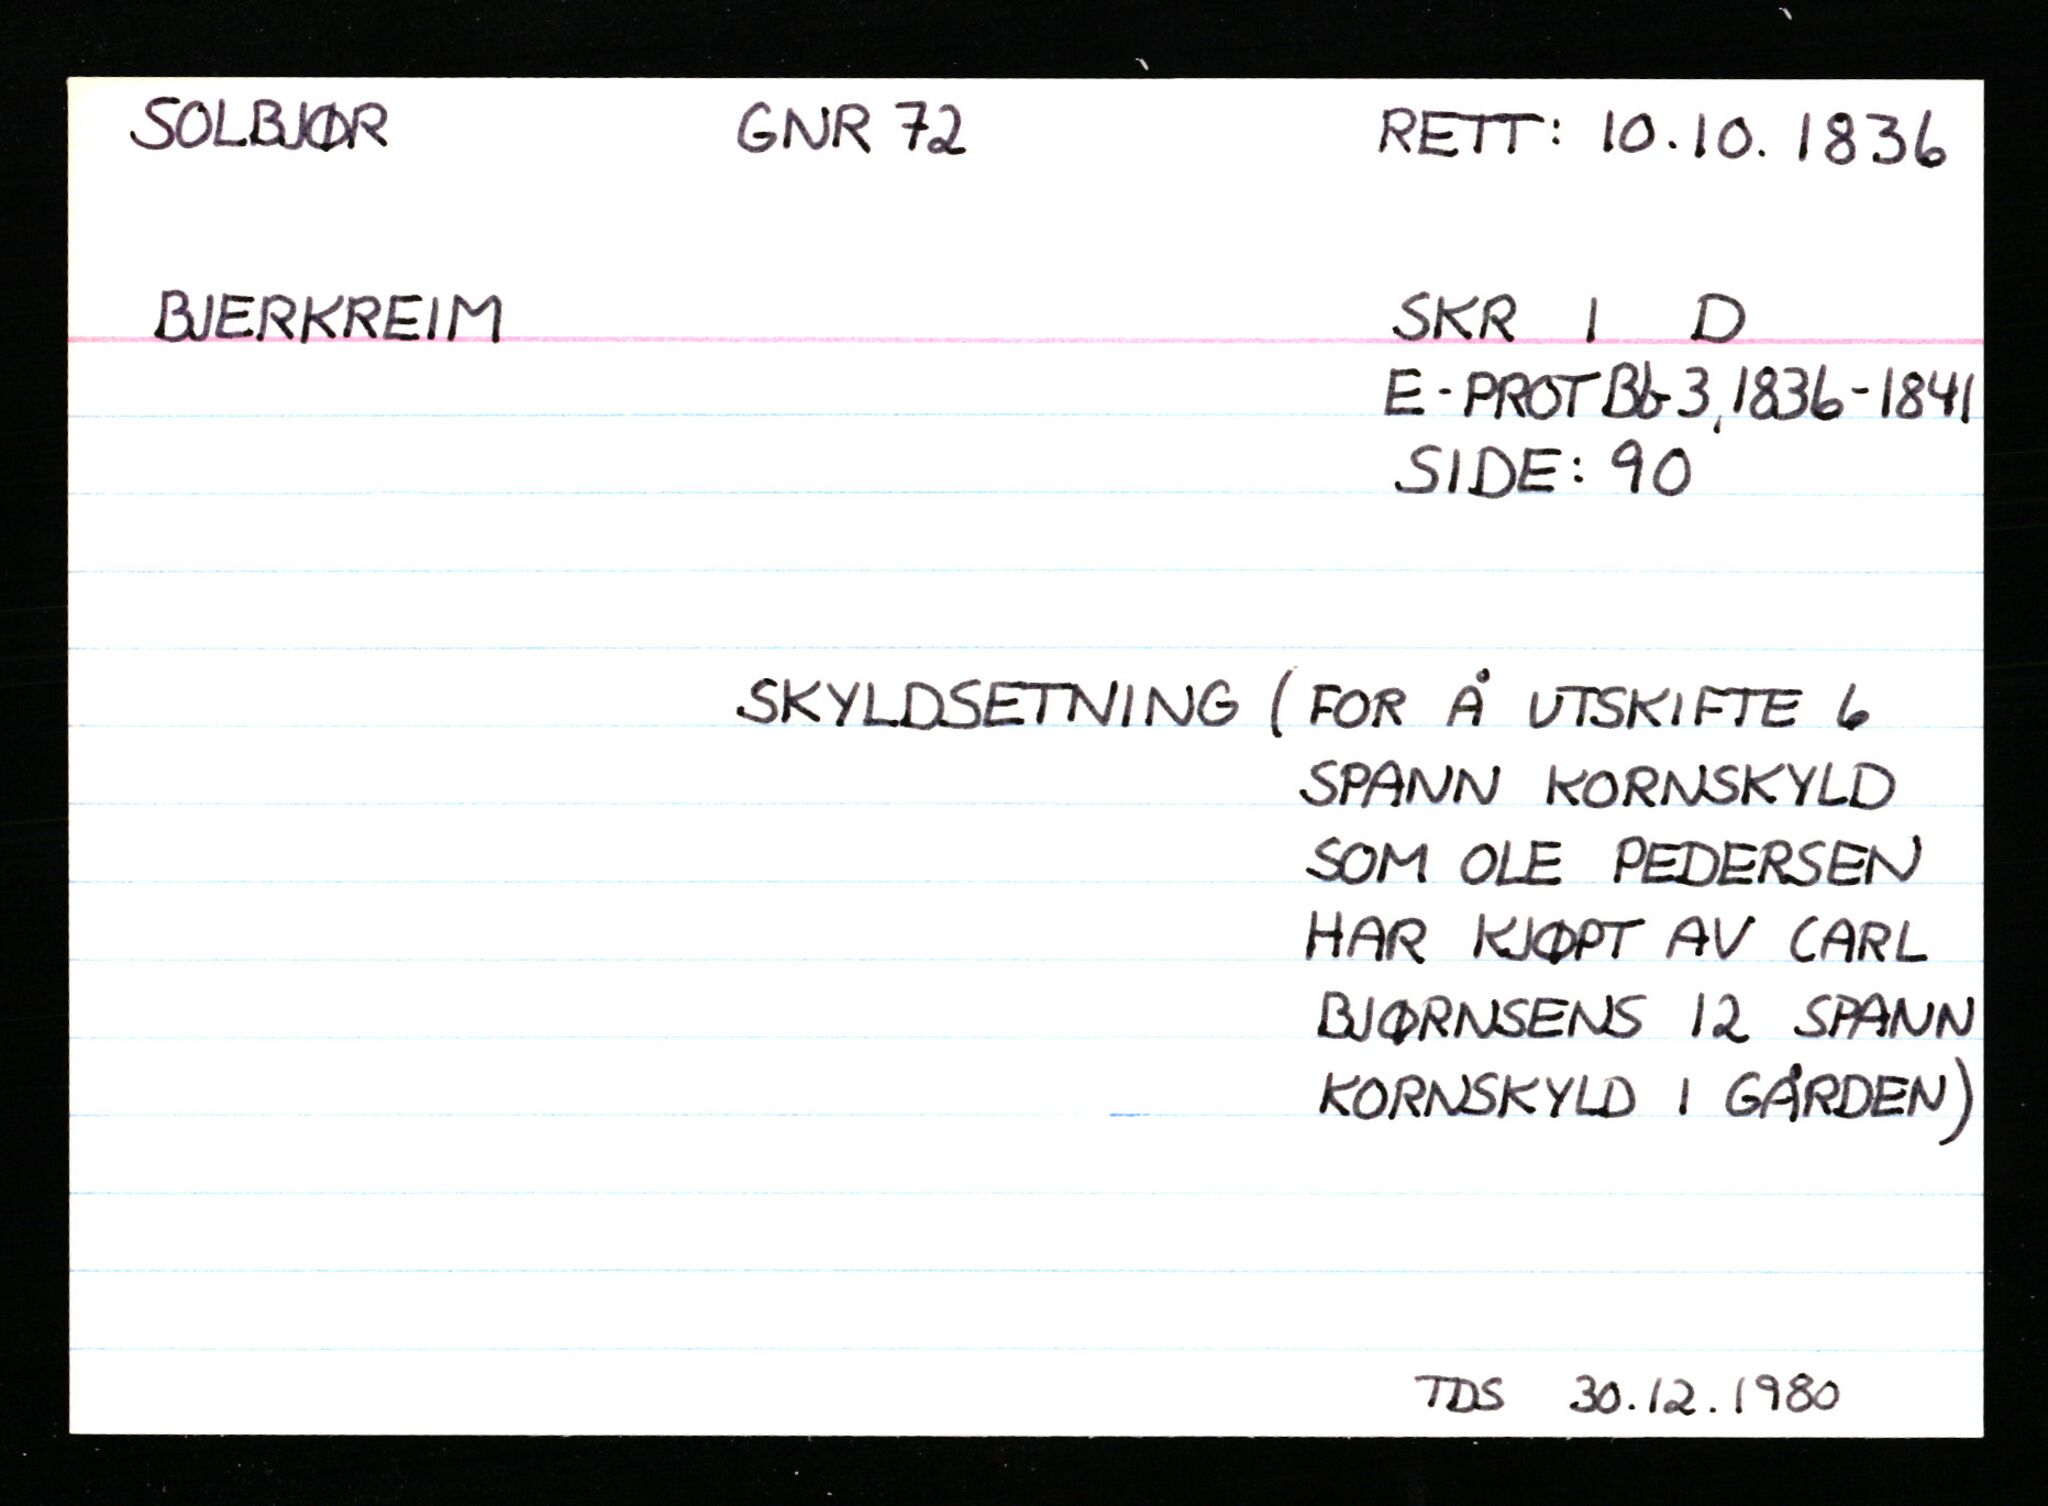 SOLBJØR GNR 72 RETT: 10.10.1836
BJERKREIM SKR I D
E-PROT Bb 3, 1836-1841
SIDE: 90
SKYLDSETNING (FOR Å UTSKIFTE 6
SPANN KORNSKYLD
SOM OLE PEDERSEN
HAR KJØPT AV CARL
BJØRNSENS 12 SPANN
KORNSKYLD I GÅRDEN)
TDS 30.12.1980